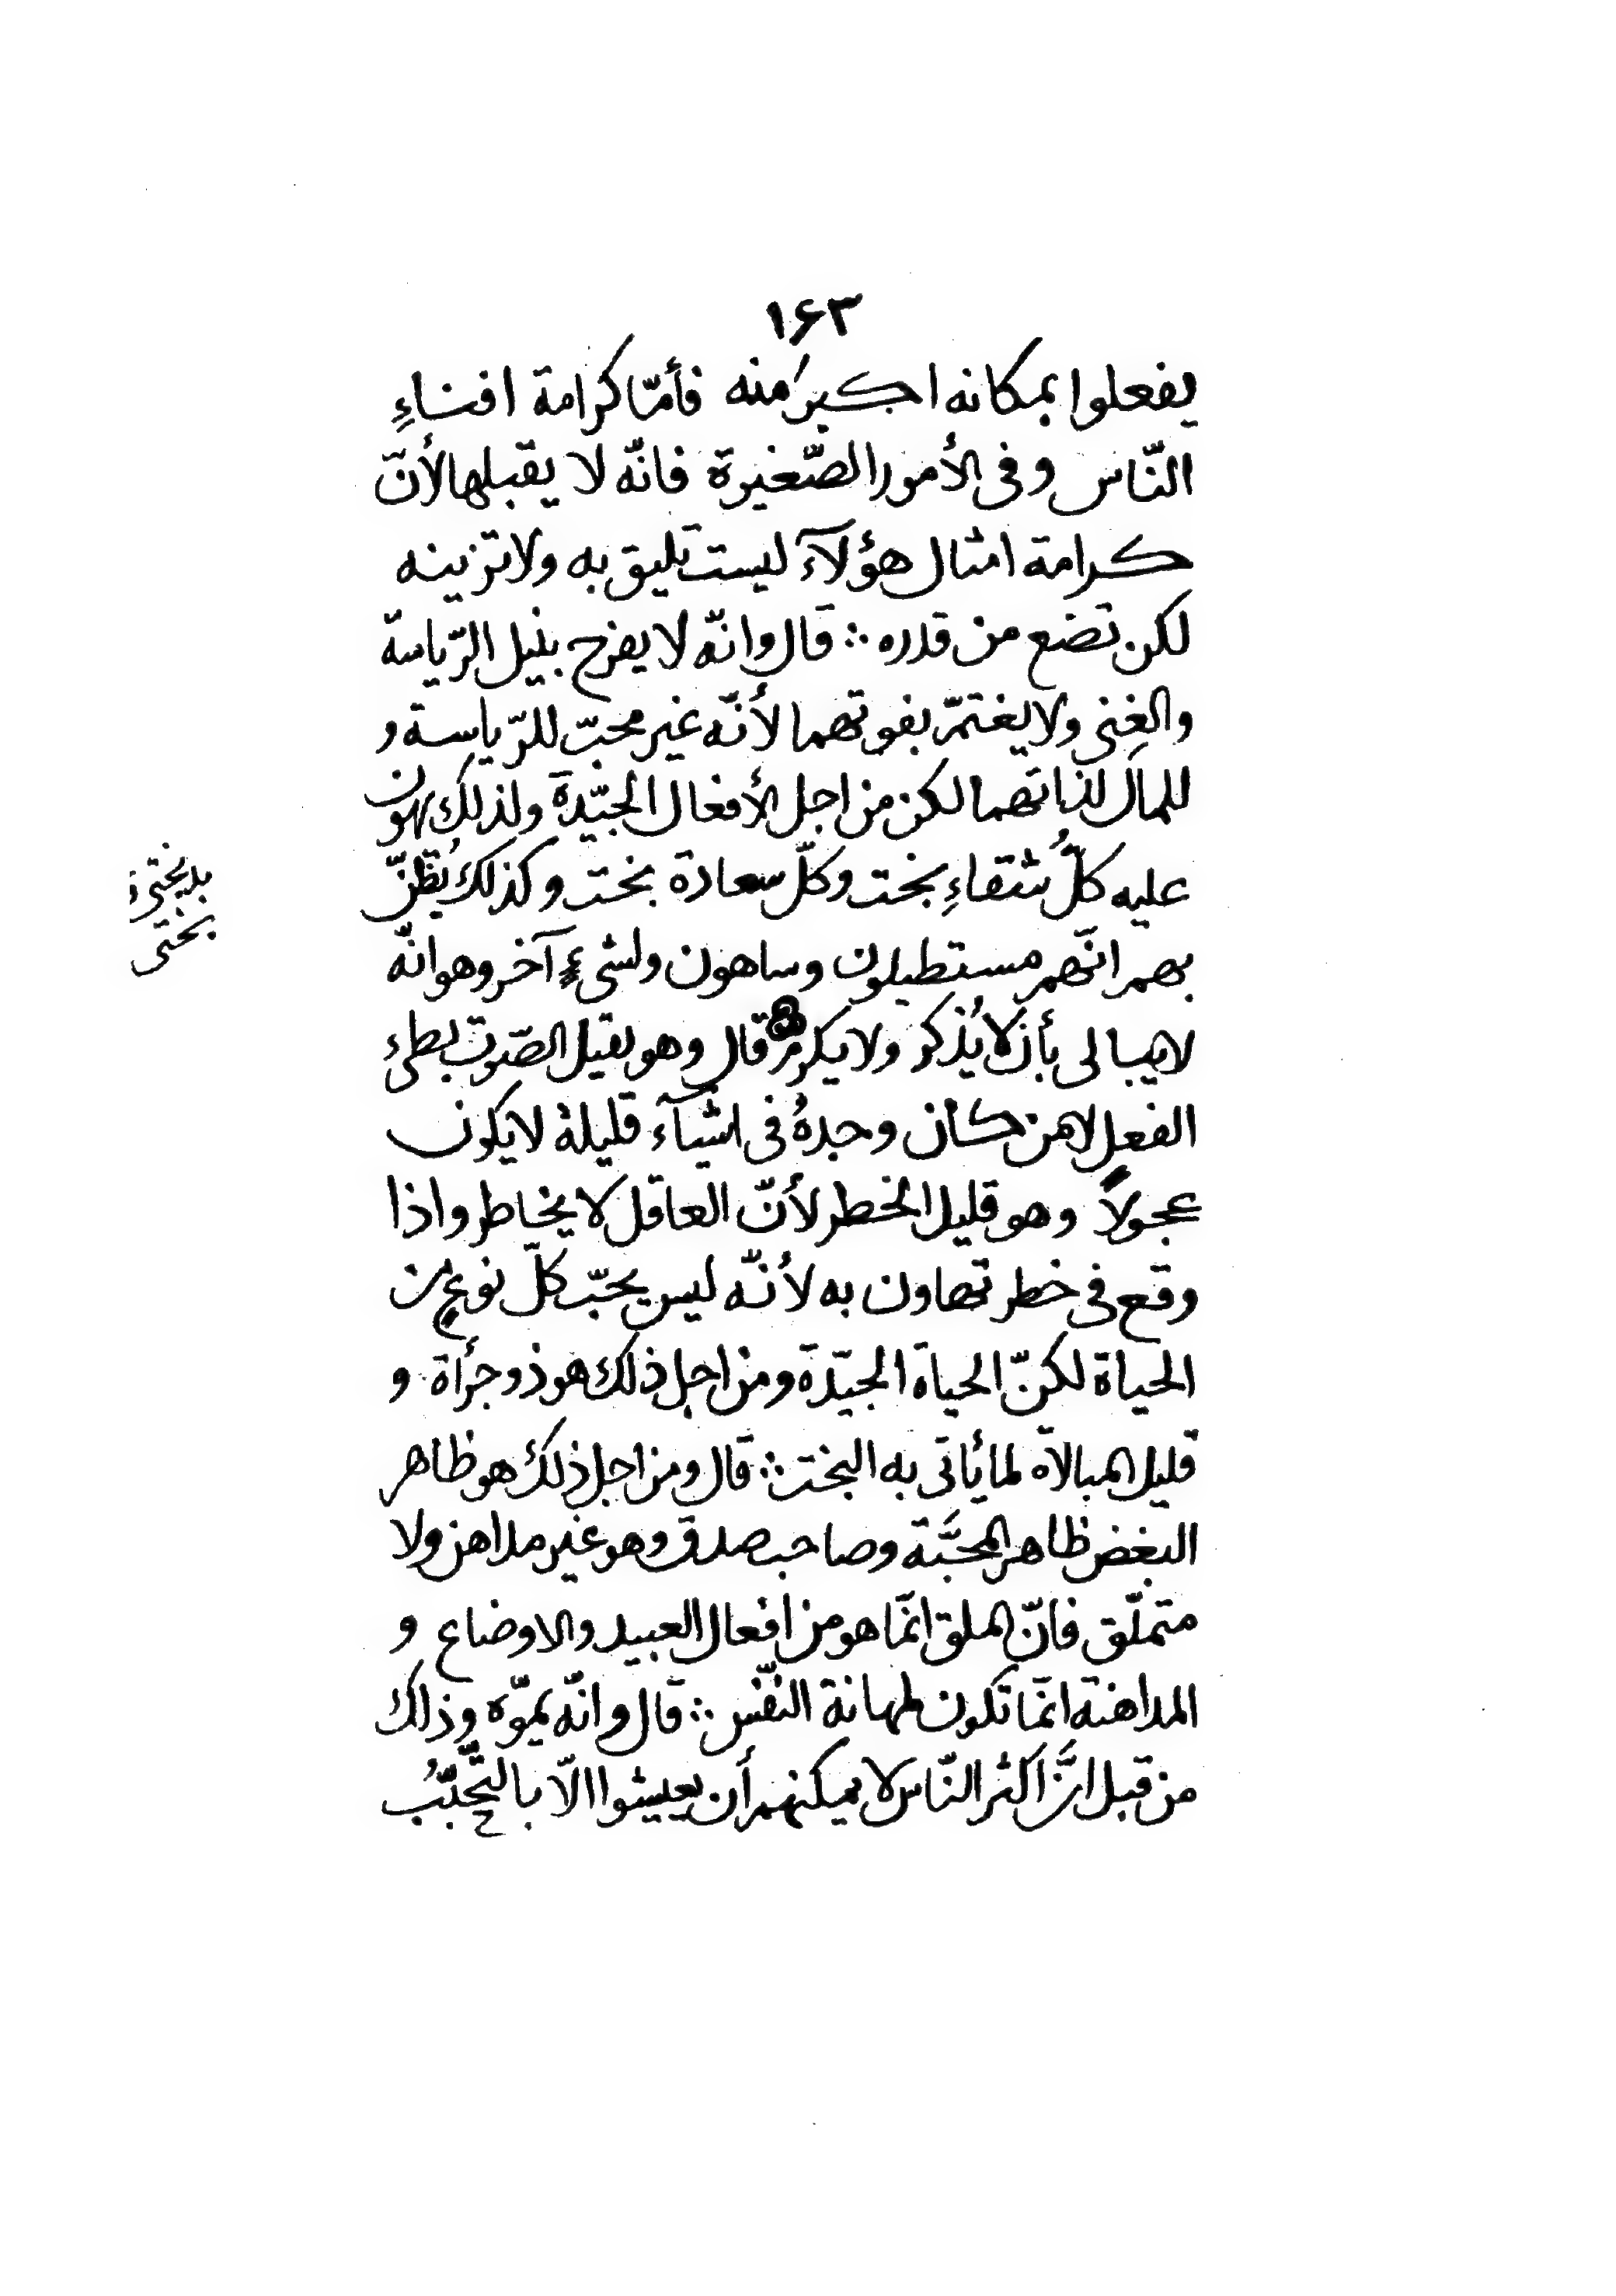 ۱۶۳
يفعلوا بمكانه اكبرَ منه فأمّا كرامة افناءِ
النّاس وفى الأمور الصّغيرة فانّه لا يقبلها لأنّ
كرامة امثال هؤلآء ليست تليق به ولا تزينه
لكن تضع من قدره ∴ قال وانّه لا يفرح بنيل الرّياسة
والغِنى ولا يغتمّ بفوتهما لأنّه غير محبّ للرّياسة و
للمال لذاتهما لكن من اجل الأفعال الجيّدة ولذلك يهون
عليه كلُّ شقاءِ بخت وكلّ سعادة بخت وكذلك يُظنّ
بهم انّهم مستطيلون وساهون ولشىءٍ آخر وهو انّه
لا يبالى بأن لا يُذكر ولا يكرم قال وهو ثقيل الصّوت بطىء
الفعل لا من كان وجدهُ فى اشيآء قليلة لا يكون
عجولاً وهو قليل الخطر لأنّ العاقل لا يخاطر واذا
وقع فى خطر تهاون به لأنّه ليس يحبّ كلّ نوعٍ من
الحياة لكنّ الحياة الجيّدة ومن اجل ذلك هو ذو جرأة و
قليل المبالاة لما يأتى به البخت ∴ قال ومن اجل ذلك هو ظاهر
البغض ظاهر المحبَّة وصاحب صدق وهو غير مداهن ولا
متملّق فانّ الملق انّما هو من افعال العبيد والاوضاع و
المداهنة انّما تكون لمهانة النّفس ∴ قال وانّه يموّه وذلك
من قبل انَّ اكثر النّاس لا يمكنهم أن يعيشوا الّا بالتّحبّبُ
بختى